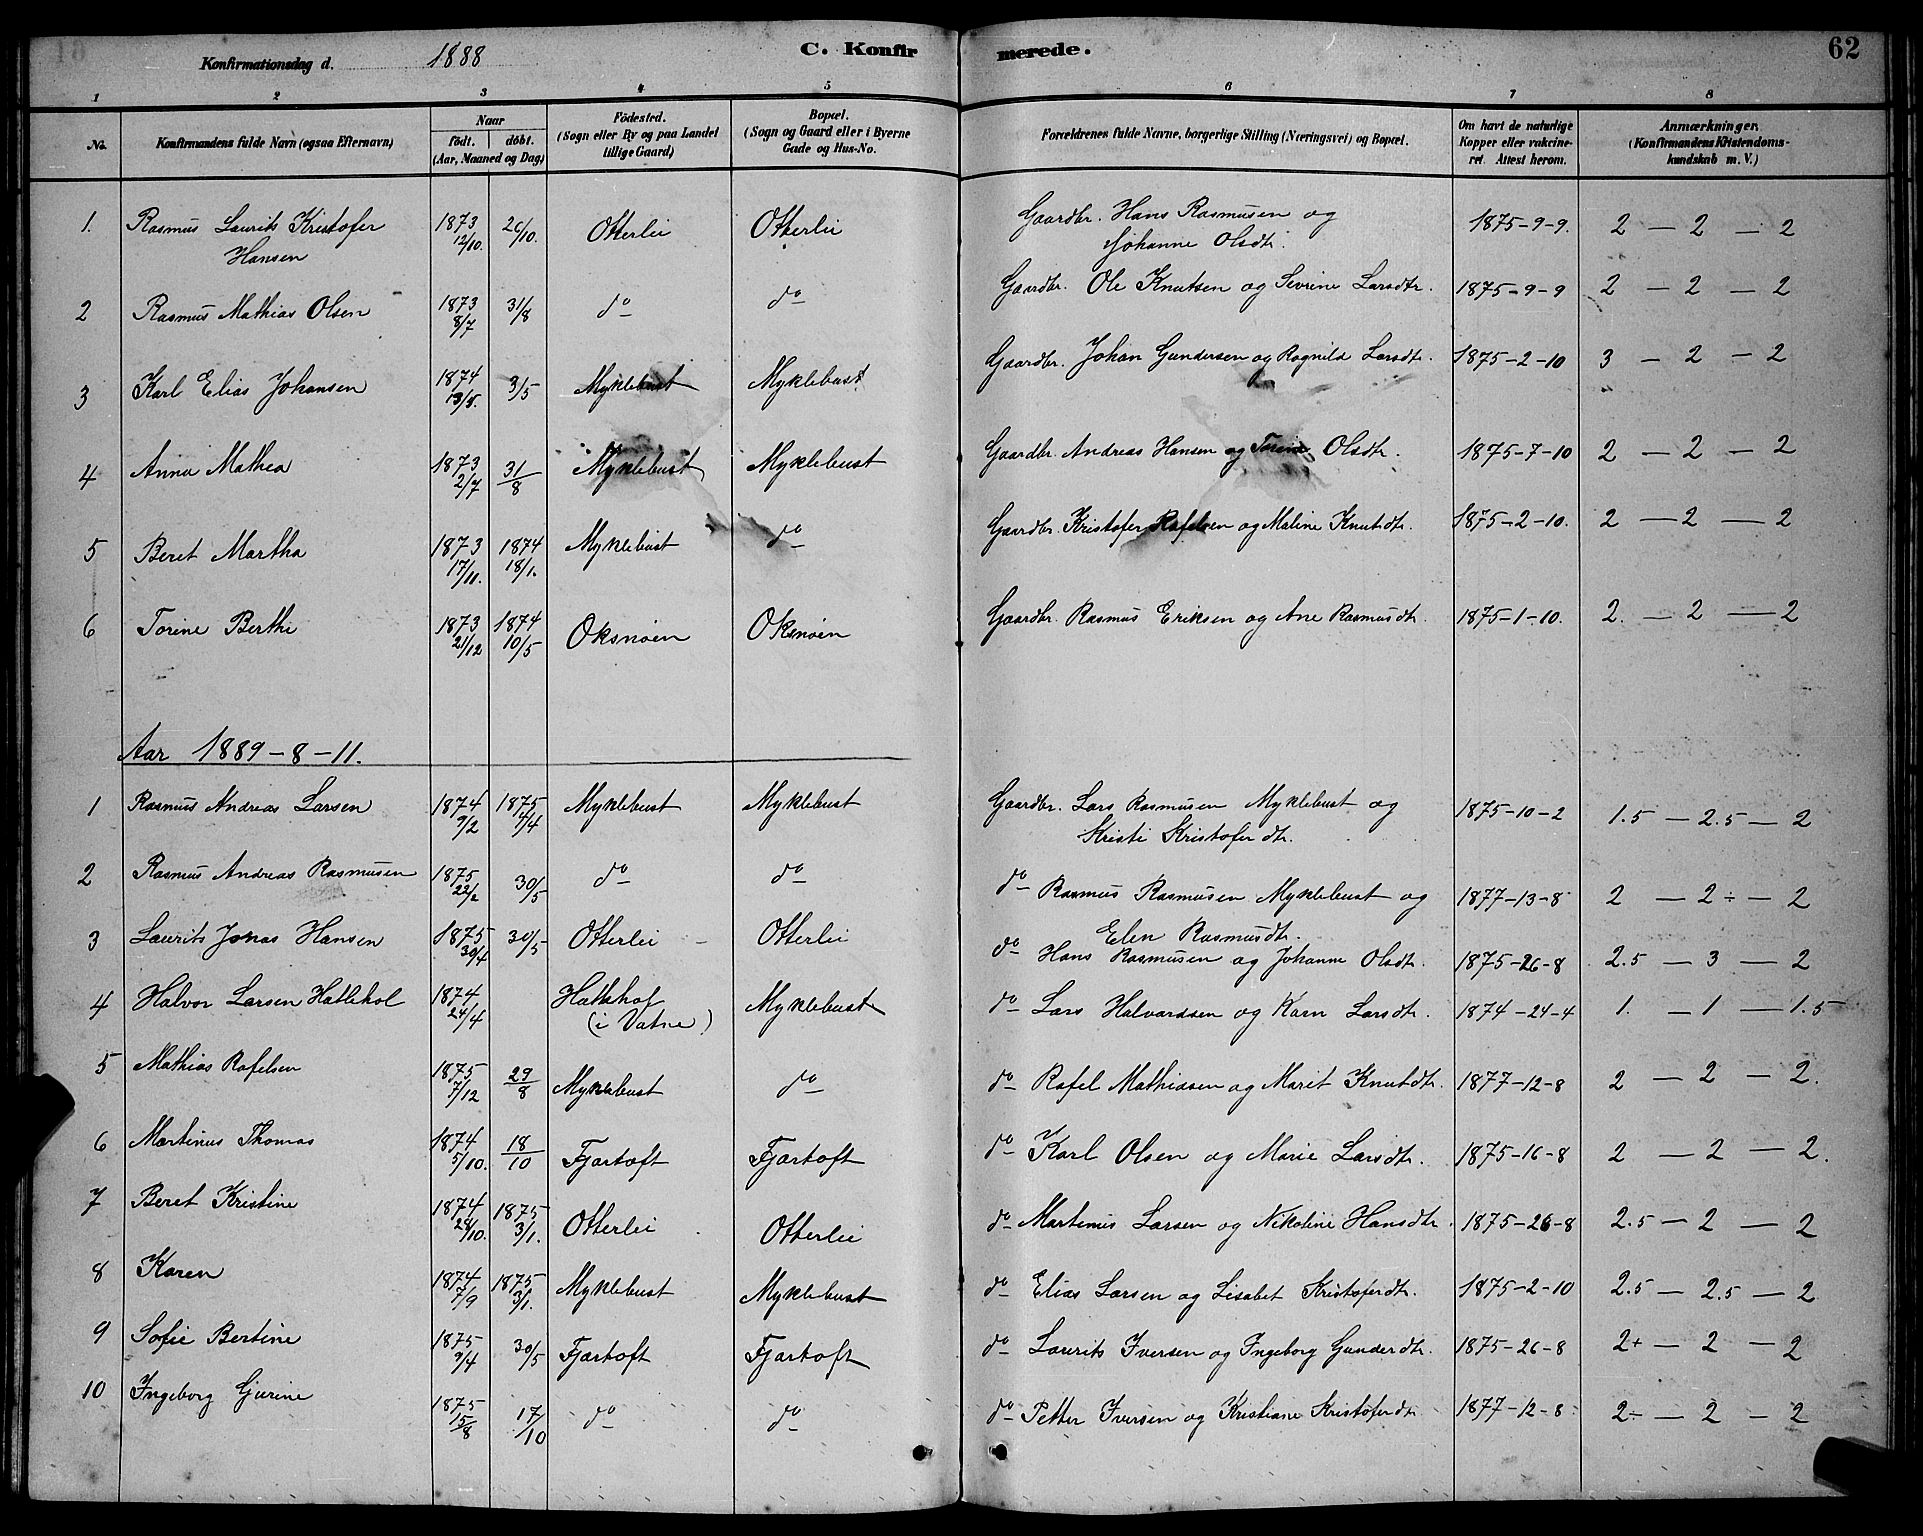 Konfirmationsdag d. 1888 C. Konfirmerede. 62
1 2 3 4 5 6 7 8
No. Konfirmandens fulde Navn (ogsaa Efternavn) Naar födt. döbt. (Aar, Maaned og Dag) Födested. (Sogn eller By og paa Landet tillige Gaard) Bopæl. (Sogn og Gaard eller i Byerne Gade og Hus-No. Forældrenes fulde Navne, borgerlige Stilling (Næringsvei) og Bopæl. Om havt de naturlige Kopper eller vakcineret. Attest herom. Anmærkninger. (Konfirmandens Kristendomskundskab m. V.)
1. Rasmus Laurits Kristofer Hansen 1873 12/10. 26/10. Otterlei Otterlei Gaardbr. Hans Rasmusen og Johanne Olsdtr. 1875-9-9. 2 — 2 — 2
2 Rasmus Mathias Olsen 1873 8/7 31/8 do do Gaardbr. Ole Knutsen og Sevrine Larsdtr. 1875-9-9 2 — 2 — 2
3 Karl Elias Johansen 1874 13/5. 3/5 Myklebust Myklebust Gaardbr. Johan Gundersen og Ragnild Larsdtr. 1875-2-10 3 — 2 — 2
4 Anna Mathea 1873 2/7 31/8 Myklebust Myklebust Gaardbr. Andreas Hansen og Torine Olsdtr. 1875-7-10 2 — 2 — 2
5 Beret Martha 1873 17/11. 1874 18/1. Myklebust do Gaardbr. Kristofer Rafelsen og Maline Knutdtr. 1875-2-10. 2 — 2 — 2
6 Torine Berthe 1873 21/12 1874 10/5 Oksnøen Oksnøen Gaardbr. Rasmus Eriksen og Ane Rasmusdtr. 1875-1-10. 2. — 2 — 2
Aar 1889-8-11.
1 Rasmus Andreas Larsen 1874 9/2 1875 4/4 Myklebust Myklebust Gaardbr. Lars Rasmusen Myklebust og Kristi Kristoferdtr. 1875-10-2 1.5 — 2.5 — 2
2 Rasmus Andreas Rasmusen 1875 22/2 30/5 do do do Rasmus Rasmusen Myklebust og Elen Rasmusdtr. 1877-13-8 2 — 2÷ — 2
3 Laurits Jonas Hansen 1875 30/4 30/5 Otterlei Otterlei do Hans Rasmusen og Johanne Olsdtr. 1875-26-8 2.5 — 3 — 2
4 Halvor Larsen Hatlehol 1874 24/4 Hatlehol (i Vatne) Myklebust do Lars Halvardsen og Karn Larsdtr. 1874-24-4 1. — 1 — 1.5
5 Mathias Rafelsen 1875 7/12 29/8 Myklebust do do Rafel Mathiassen og Marit Knutdtr. 1877-12-8 2 — 2 — 2.
6 Martinus Thomas 1874 5/10. 18/10 Fjærtoft Fjærtoft do Karl Olsen og Marie Larsdtr. 1875-16-8 2 — 2 — 2.
7 Beret Kristine 1874 28/10. 1875 3/1. Otterlei Otterlei do Martinus Larsen og Nikoline Hansdtr. 1875-26-8 2.5 — 2 — 2
8 Karen 1874 7/9 1875 3/1. Myklebust Myklebust do Elias Larsen og Lisabet Kristoferdtr. 1875-2-10 2.5 — 2.5 — 2
9 Sofie Bertine 1875 9/4 30/5 Fjærtoft Fjærtoft do Laurits Iversen og Ingeborg Gunderdtr. 1875-26-8 2+ — 2 — 2
10 Ingeborg Gjurine 1875 15/8 17/10 do do do Petter Iversen og Kristiane Kristoferdtr. 1877-12-8 2÷ — 2 — 2